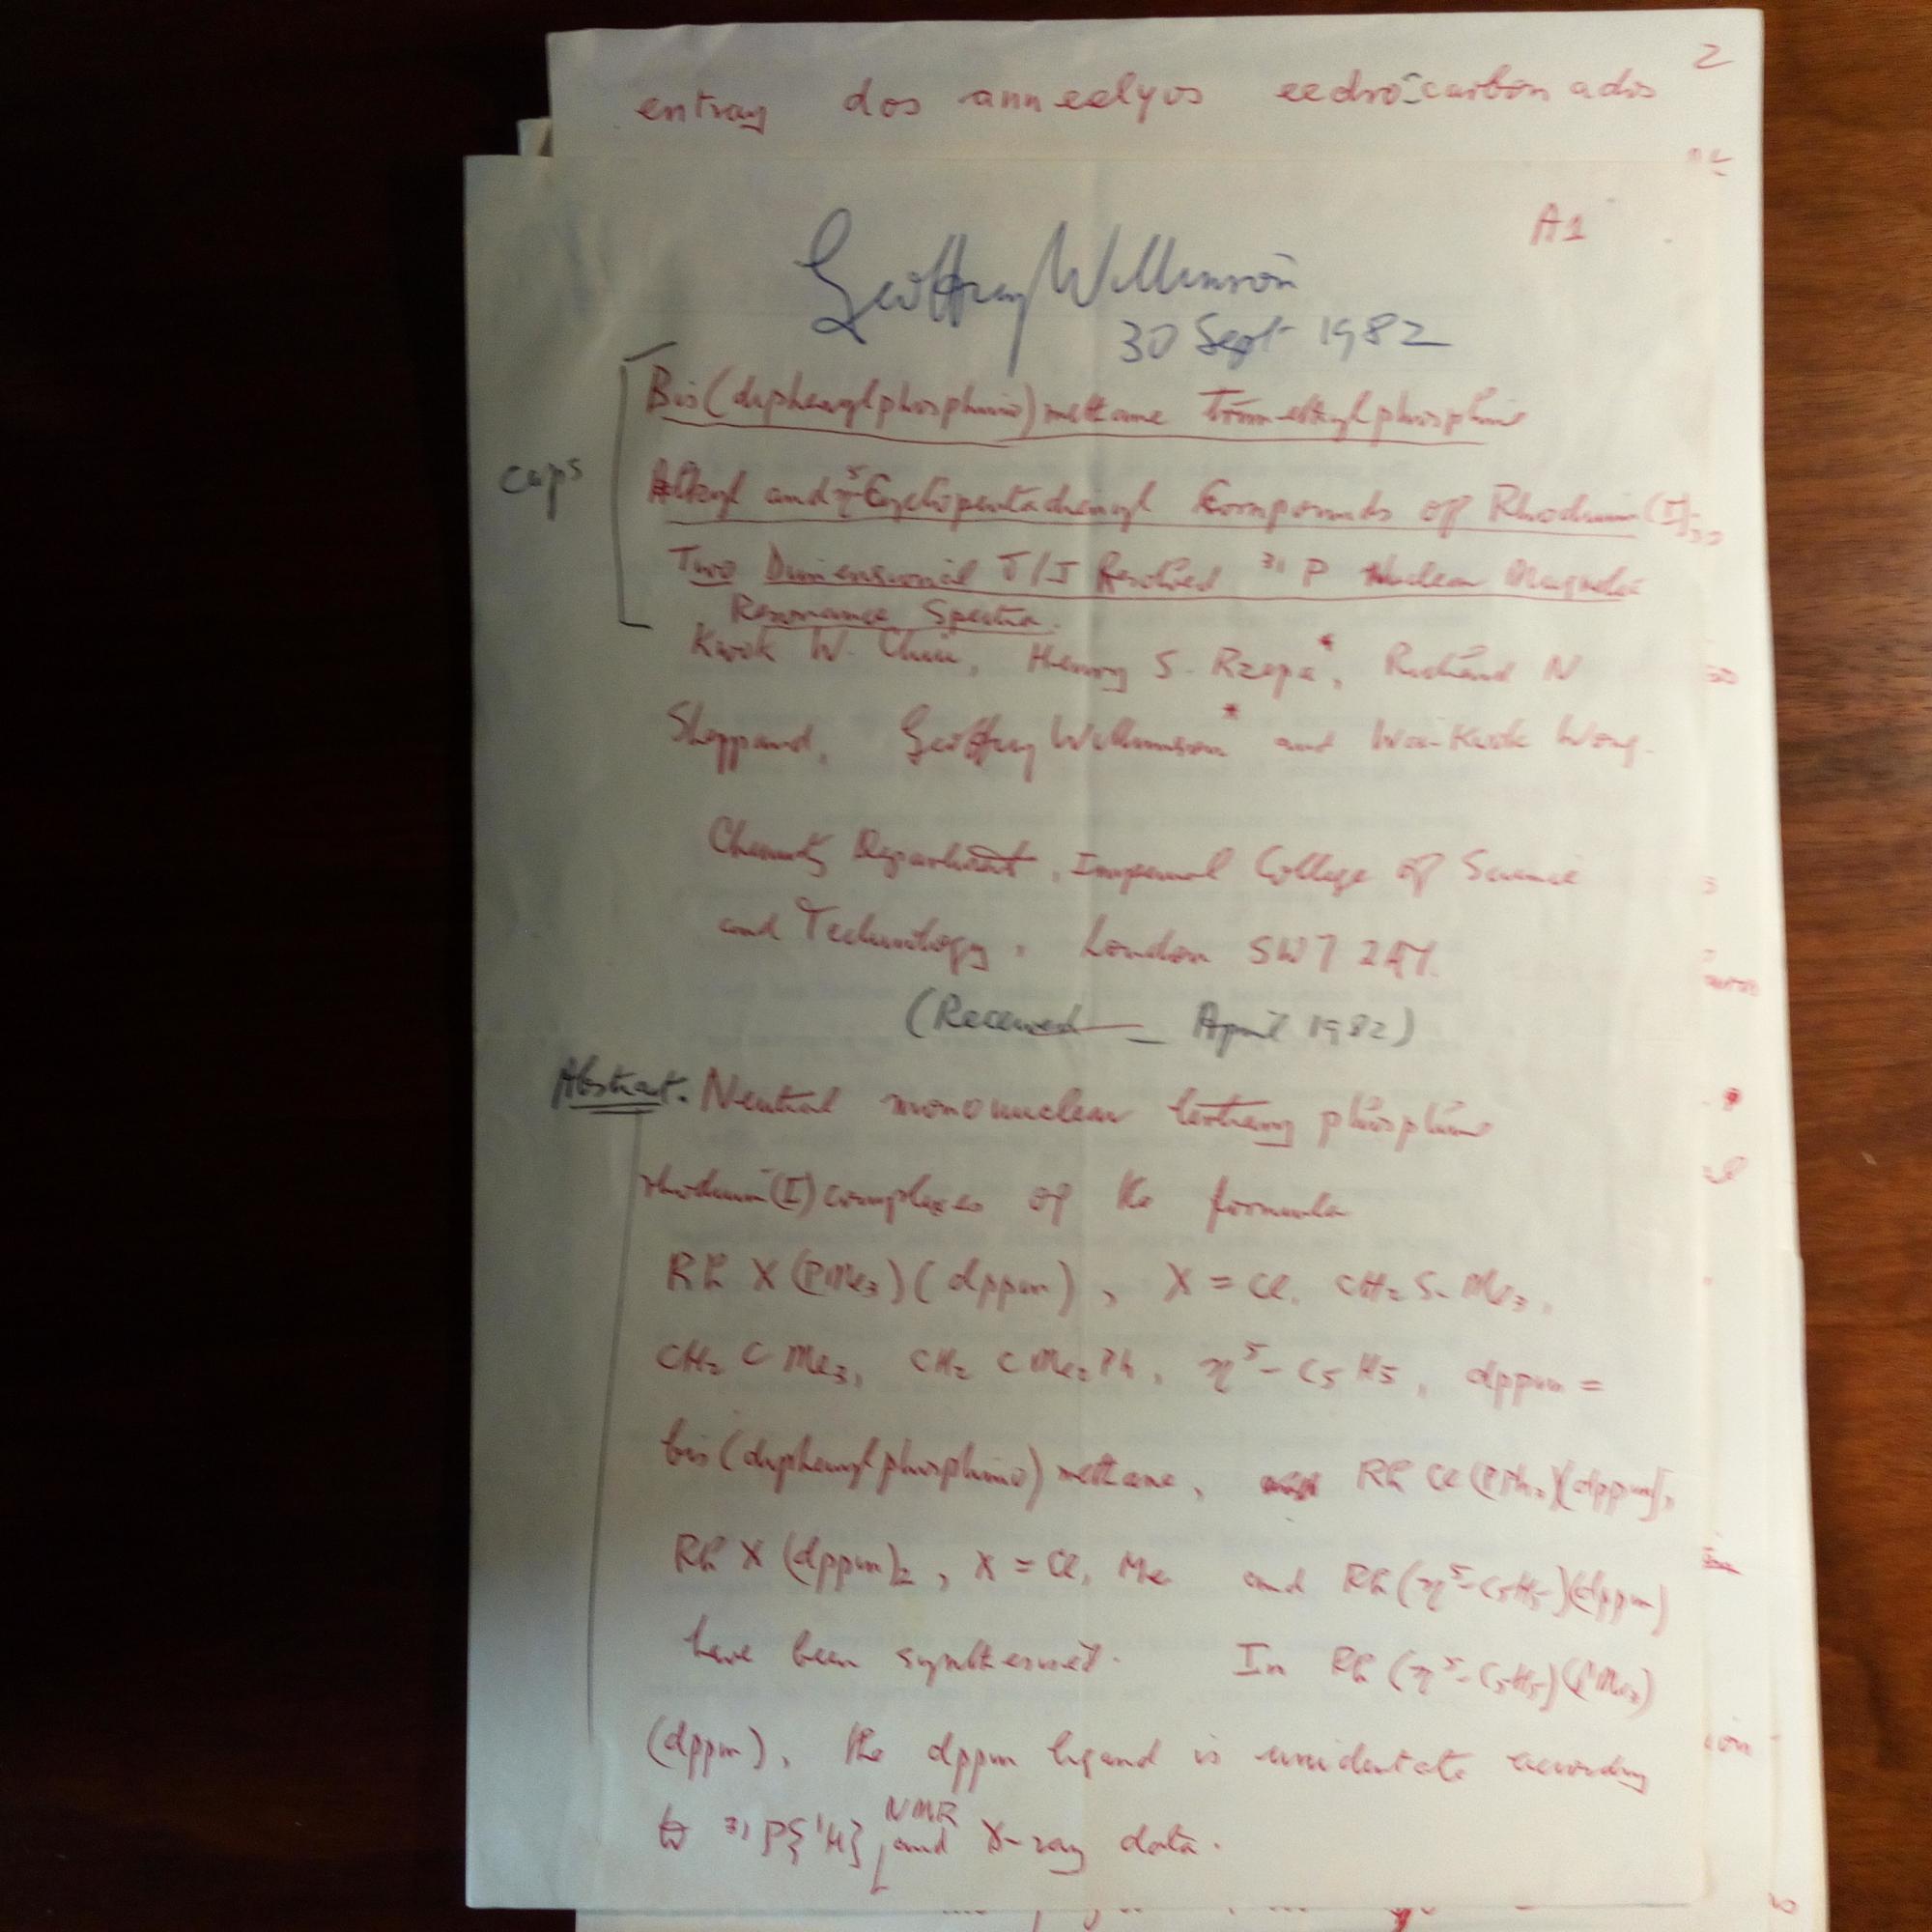 2
entray dos
A1
Geoffrey Wilkinson
30 Sept 1982
Bis(diphenylphosphino)methane Trimethylphosphine
caps
Alkyl and η⁵-Cyclopentadienyl Compounds of Rhodium(I);
Two Dimensional δ/J Resolved ³¹P Nuclear Magnetic
Resonance Spectra.
Kwok W. Chiu, Henry S. Rzepa*, Richard N
Sheppard, Geoffrey Wilkinson* and Wai-Kwok Wong.
Chemistry Department, Imperial College of Science
and Technology, London SW7 2AY.
(Received — April 1982)
Abstract. Neutral mononuclear tertiary phosphine
rhodium(I) complexes of the formula
Rh X (PMe₃)(dppm), X = Cl, CH₂SiMe₃,
CH₂CMe₃, CH₂CMe₂Ph, η⁵-C₅H₅, dppm =
bis(diphenylphosphino)methane, Rh Cl (PPh₃)(dppm),
Rh X (dppm)₂, X = Cl, Me and Rh(η⁵-C₅H₅)(dppm)
have been synthesised. In Rh(η⁵-C₅H₅)(PMe₃)
(dppm), the dppm ligand is unidentate according
to ³¹P{¹H} NMR and X-ray data.